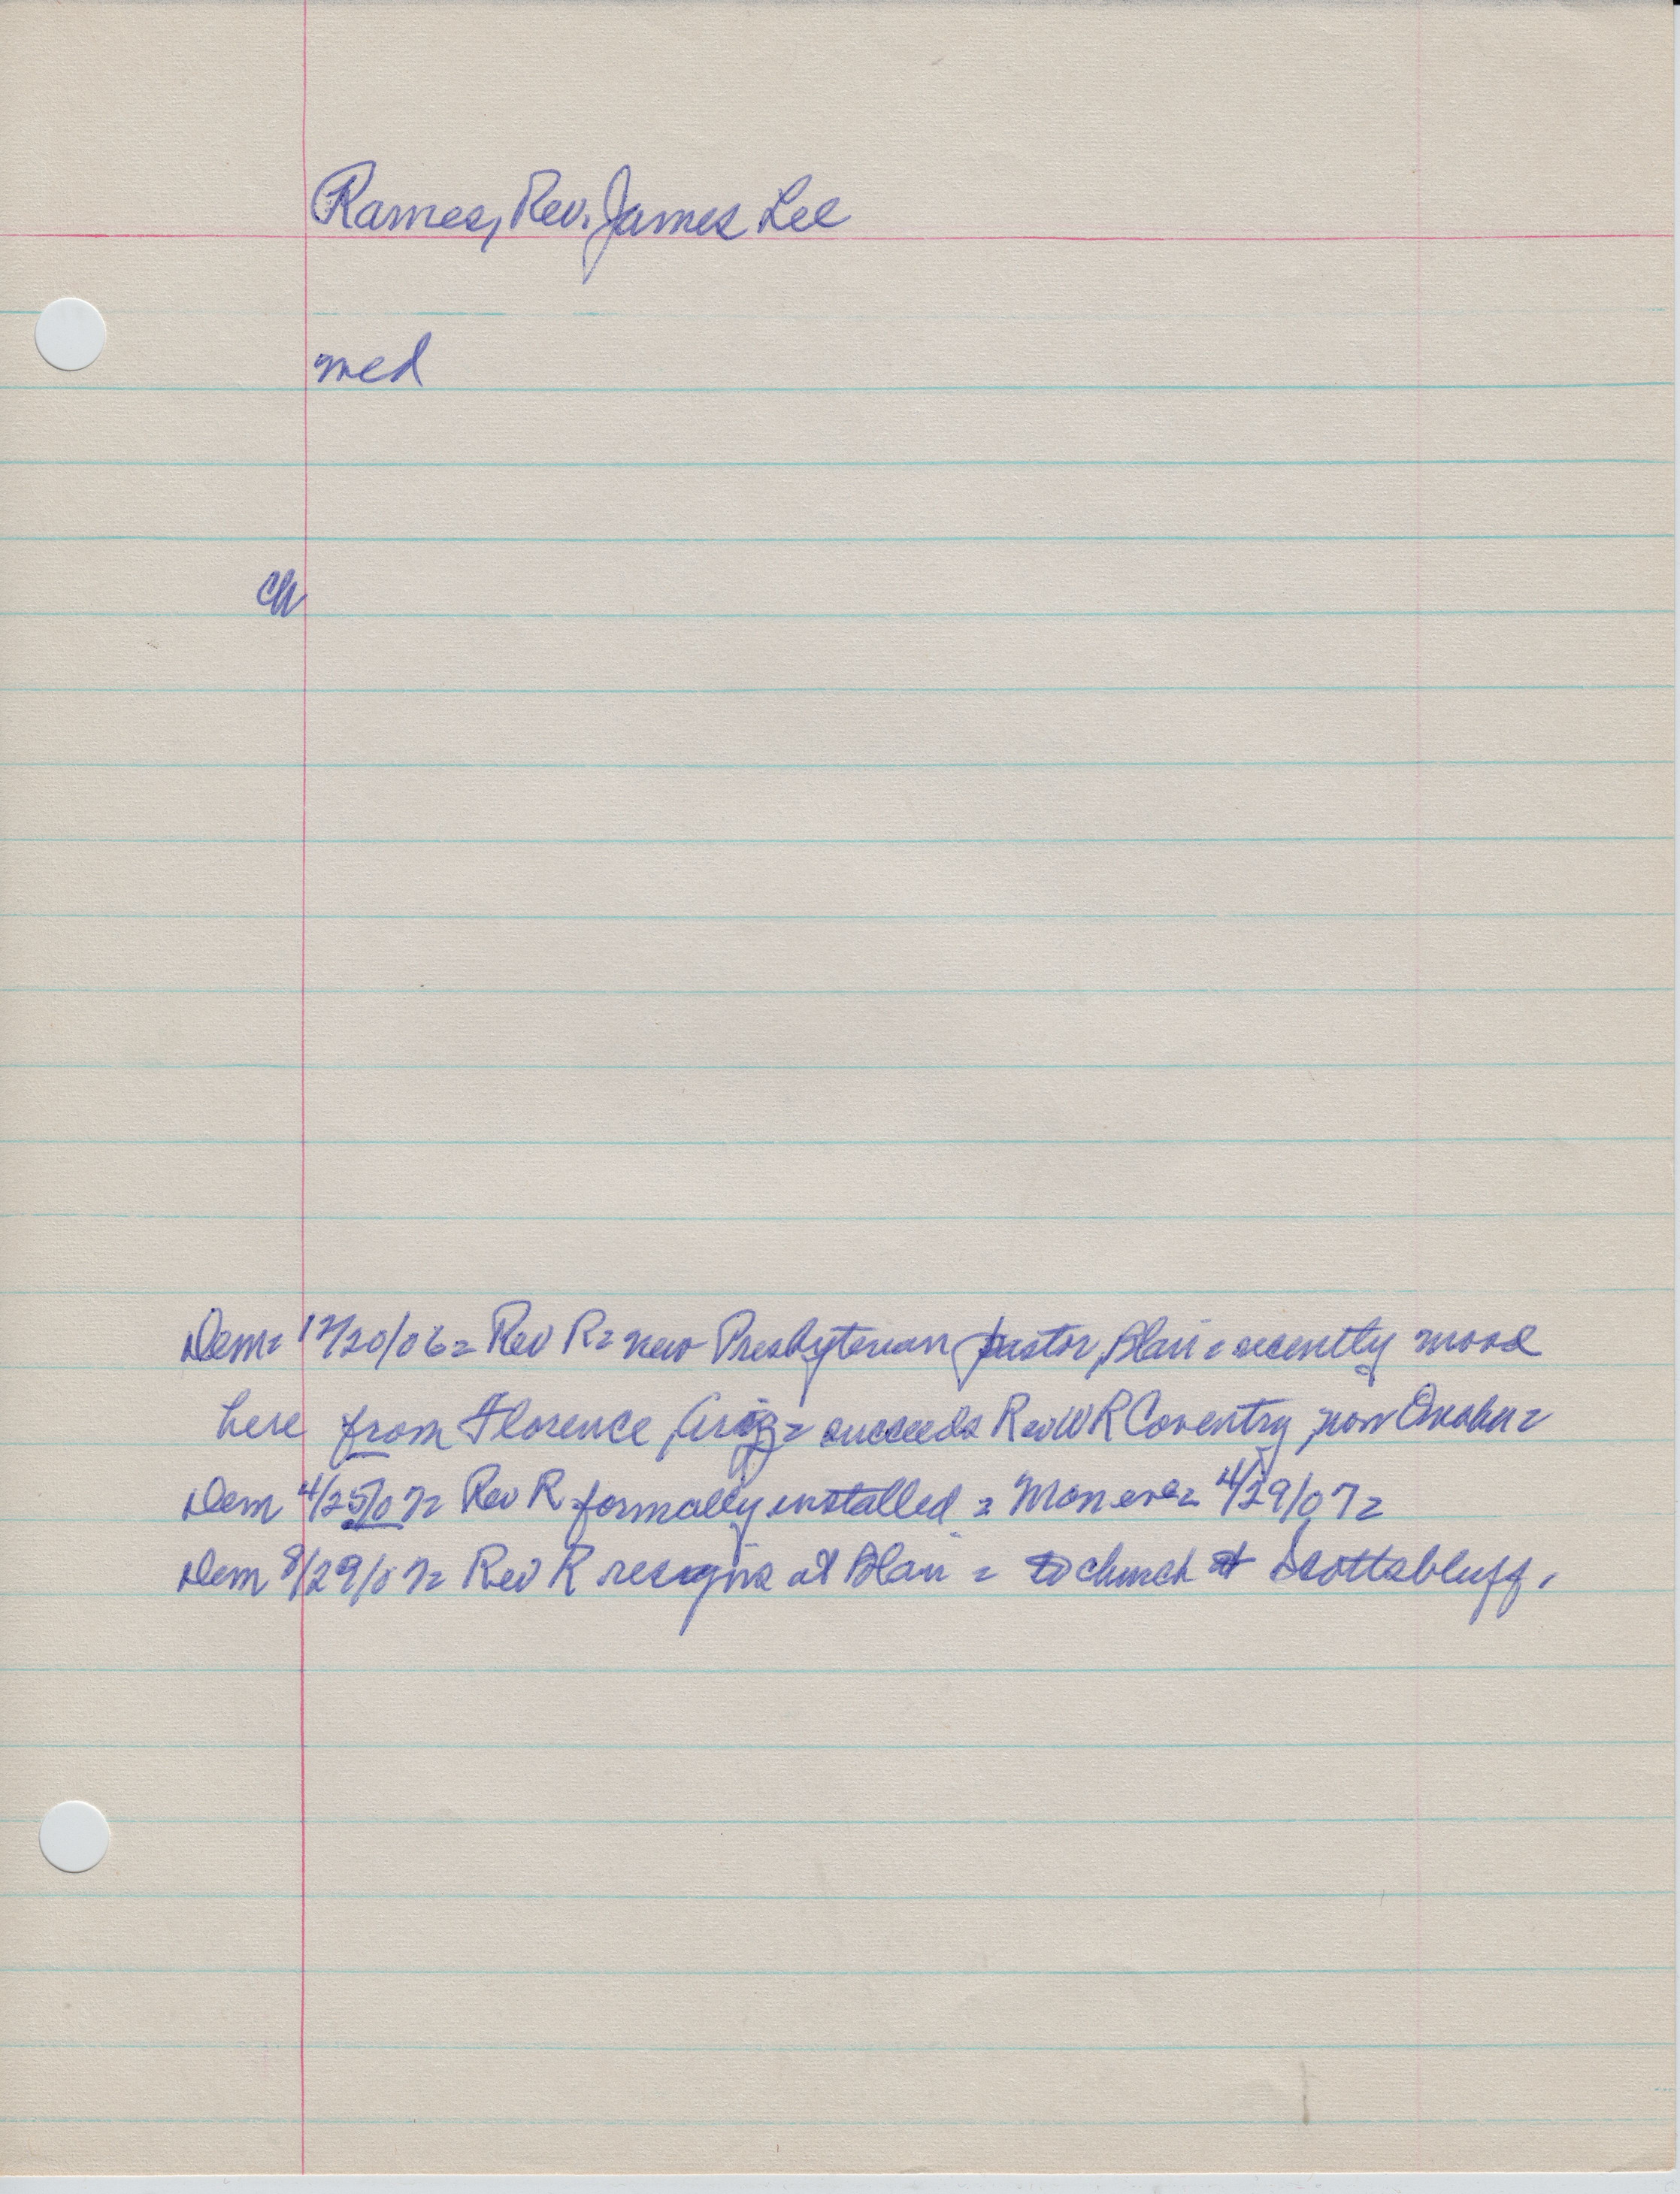 Rames, Rev. James Lee
med
ch
Dem= 12/20/06= Rev R= new Presbyterian pastor, Blair= recently moved
here from Florence, Ariz= succeeds Rev W R Coventry, now Omaha=
Dem 4/25/07= Rev R formally installed = Mon eve= 4/29/07=
Dem 8/29/07= Rev R resigns at Blair = to church at Scottsbluff.